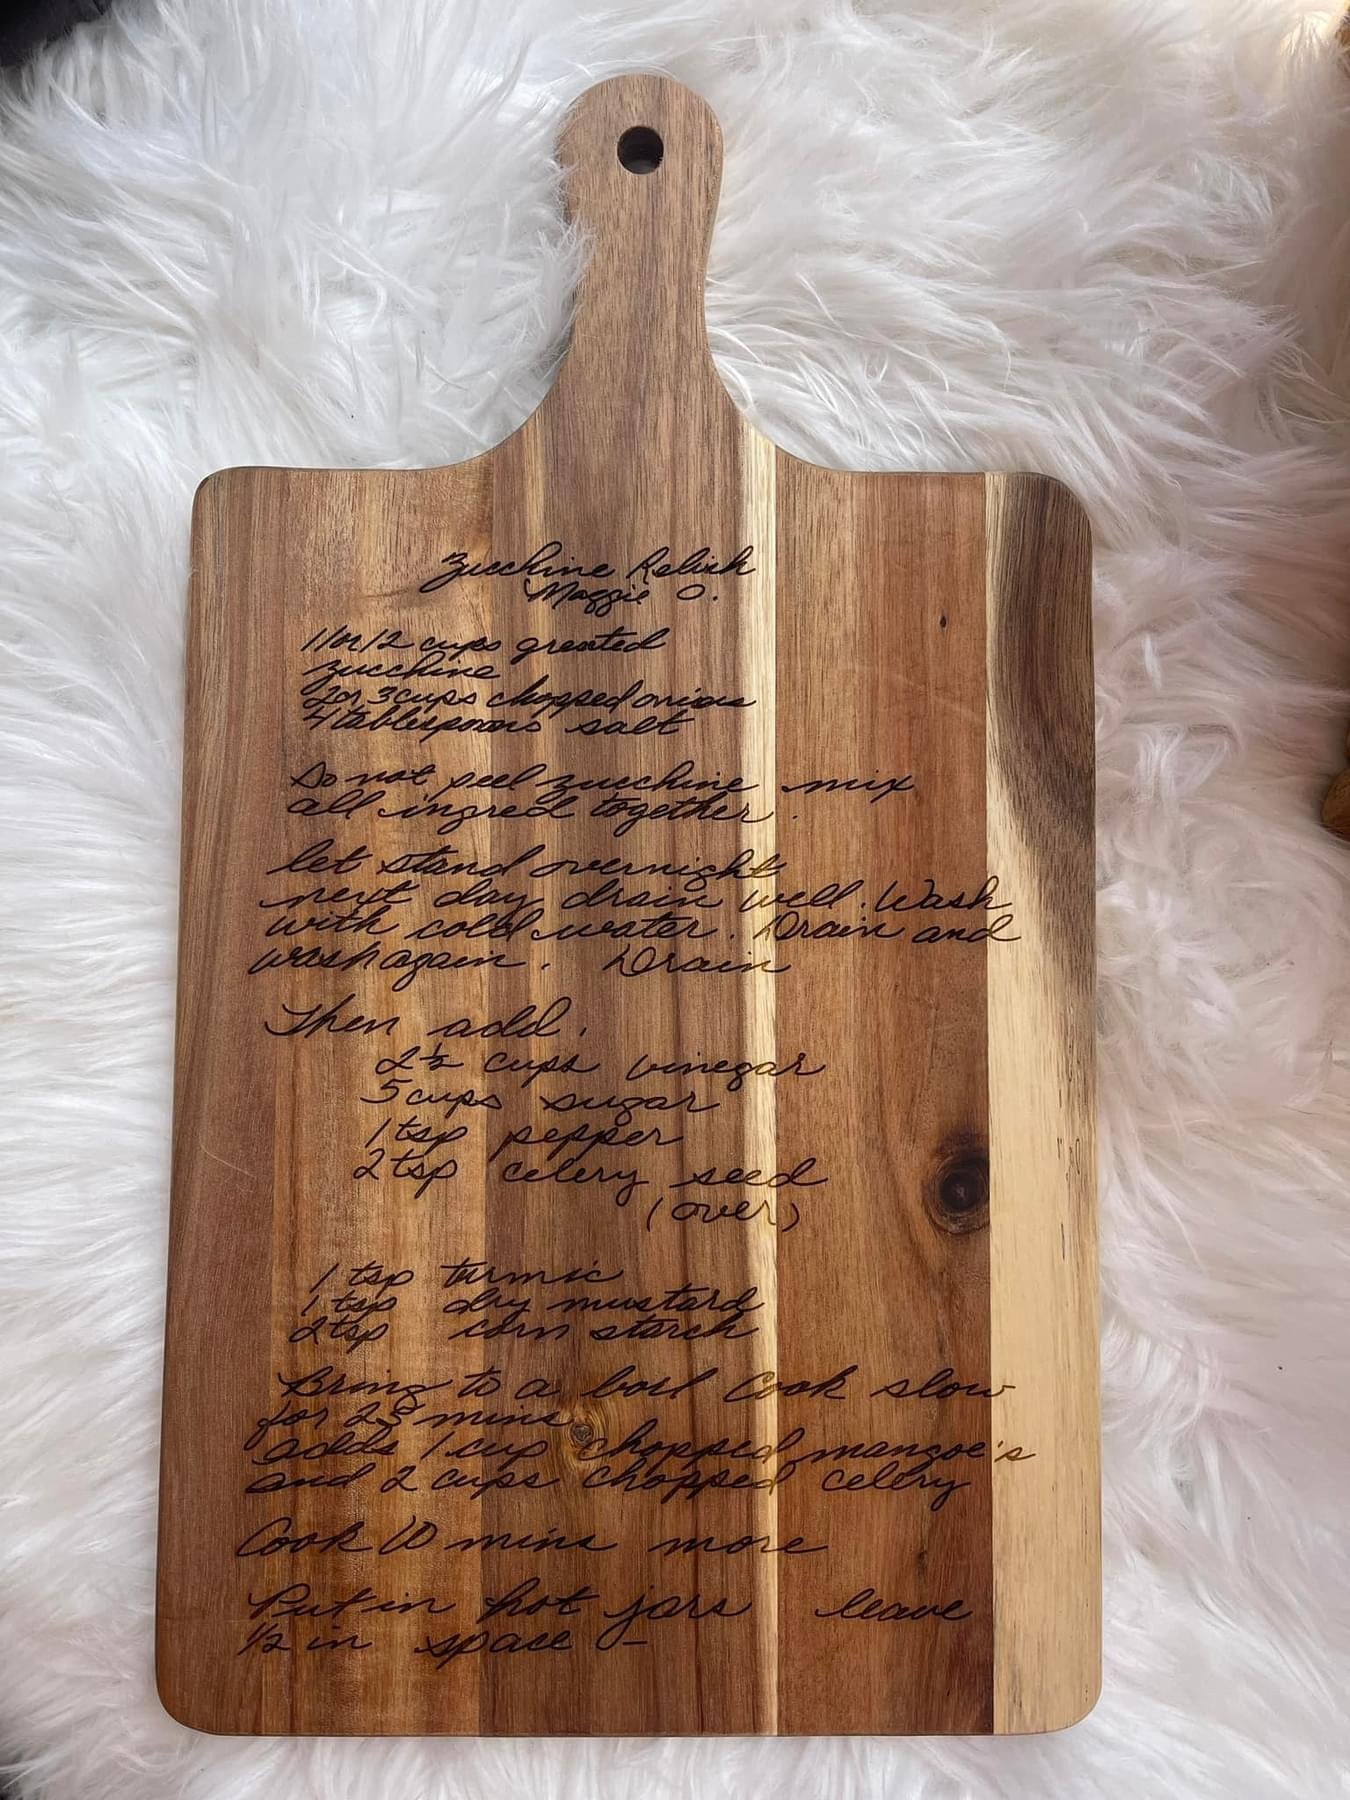 Zucchine Relish
Maggie O.
11 or 12 cups greated
zucchine
2 or 3 cups chopped onions
4 tablespoons salt
Do not peel zucchine mix
all ingred together.
let stand overnight
next day drain well. Wash
with cold water. Drain and
wash again. Drain
Then add.
2½ cups vinegar
5 cups sugar
1 tsp pepper
2 tsp celery seed
(over)
1 tsp turmic
1 tsp dry mustard
2 tsp corn starch
Bring to a boil Cook slow
for 25 mins
adds 1 cup chopped mangoe's
and 2 cups chopped celery
Cook 10 mins more
Put in hot jars leave
1/2 in space —